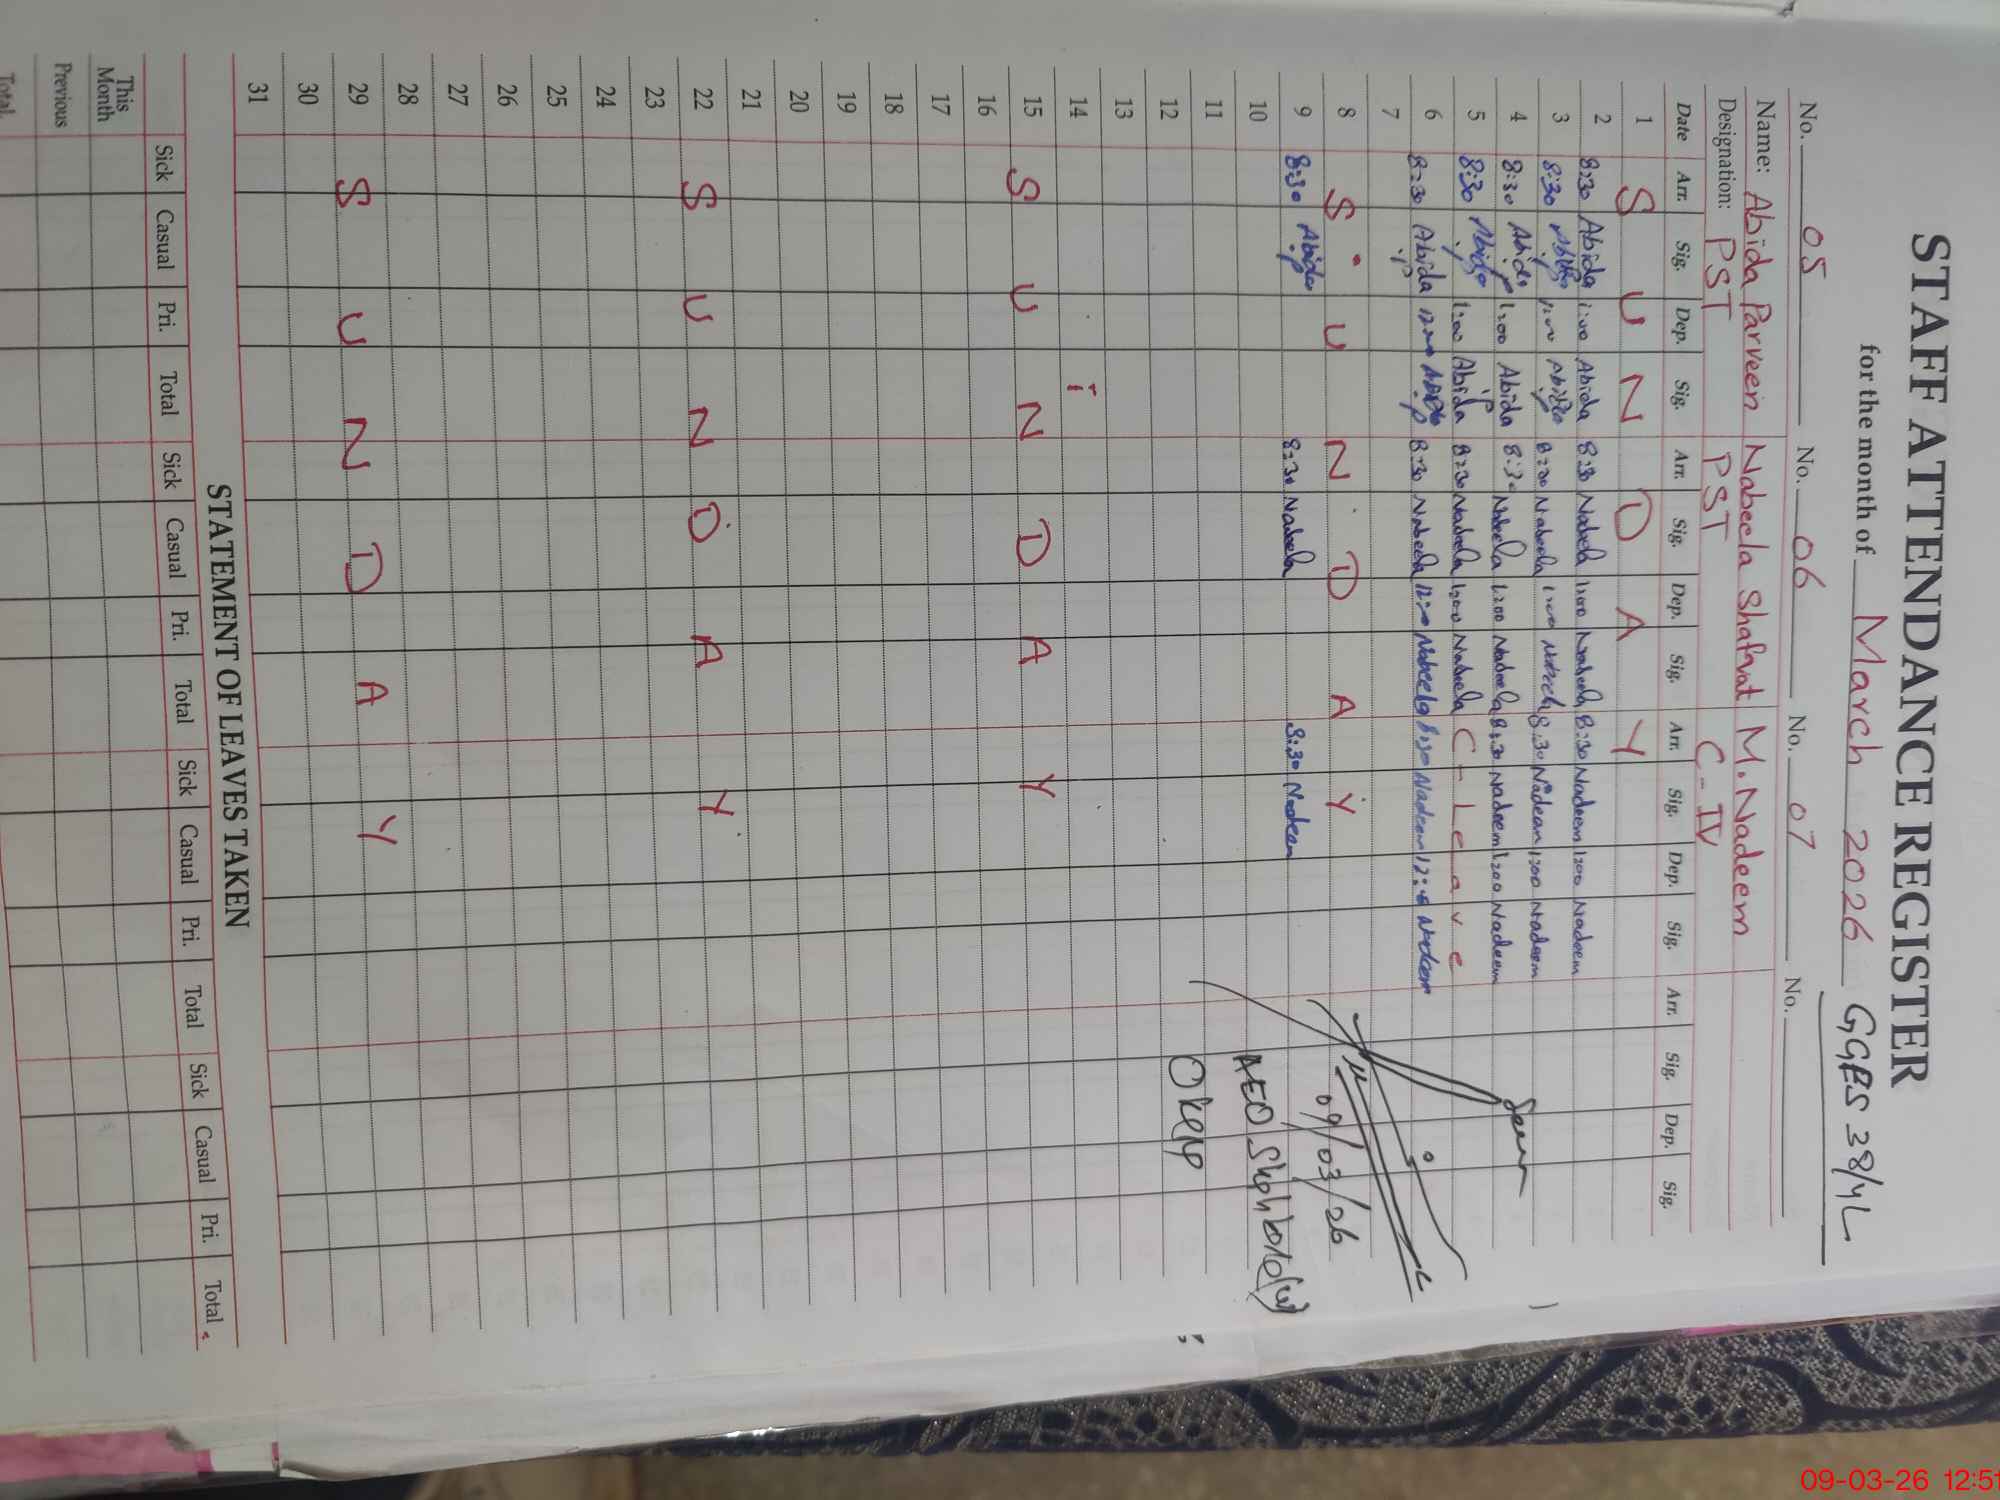 STAFF ATTENDANCE REGISTER
for the month of March 2026 GGES 38/4L
No. 05 No. 06 No. 07 No.
Name: Abida Parveen Nabeela Shafqat M. Nadeem
Designation: PST PST C-IV
Date Arr. Sig. Dep. Sig. Arr. Sig. Dep. Sig. Arr. Sig. Dep. Sig. Arr. Sig. Dep. Sig.
1 S U N D A Y
2 8:30 Abida 1:00 Abida 8:30 Nabeela 1:00 Nabeela 8:30 Nadeem 1:00 Nadeem
3 8:30 Abida 1:00 Abida 8:30 Nabeela 1:00 Nabeela 8:30 Nadeem 1:00 Nadeem
4 8:30 Abida 1:00 Abida 8:30 Nabeela 1:00 Nabeela 8:30 Nadeem 1:00 Nadeem
5 8:30 Abida 1:00 Abida 8:30 Nabeela 1:00 Nabeela C-Leave
6 8:30 Abida 12:00 Abida 8:30 Nabeela 12:00 Nabeela 8:30 Nadeem 12:00 Nadeem
7
8 S U N D A Y 09/03/26
9 8:30 Abida 8:30 Nabeela 8:30 Nadeem
10 AEO
11
12
13
14
15 S U N D A Y
16
17
18
19
20
21
22 S U N D A Y
23
24
25
26
27
28
29 S U N D A Y
30
31
STATEMENT OF LEAVES TAKEN
Sick Casual Pri. Total Sick Casual Pri. Total Sick Casual Pri. Total Sick Casual Pri. Total
This Month
Previous
Total
09-03-26 12:51